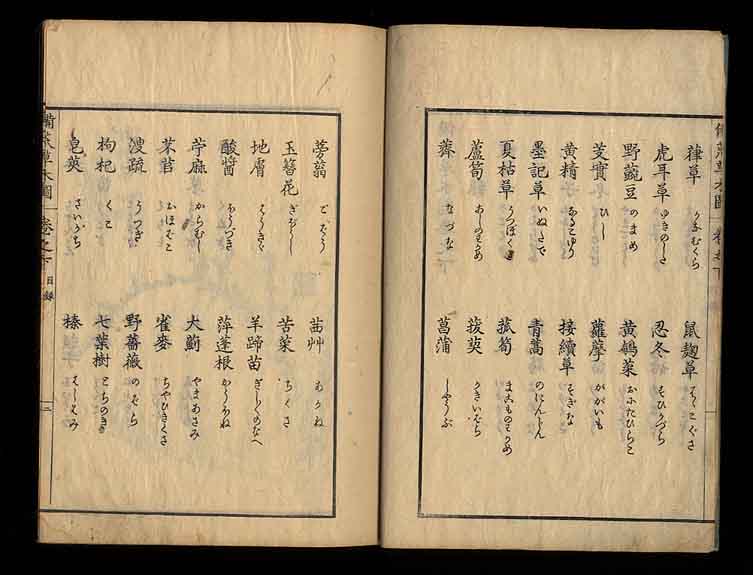 備荒草木圖 卷之下
葎草 かなむくら 鼠麹草 はゝこぐさ
虎耳草 ゆきのした 忍冬 すひかづら
野豌豆 のまめ 黄鵪菜 おにたひらこ
芰實 ひし 蘿摩 ががいも
黄精 なるこゆり 接續草 すぎな
墨記草 いぬたで 青蒿 のにんじん
夏枯草 うつぼくさ 菰筍 まこものわかめ
蘆筍 あしのわかめ 菝葜
薺 なづな 菖蒲 しやうぶ
蒡翁 ごばう 茜艸 あかね
玉簪花 ぎばうし 苦菜 ちくさ
地膚 はうきぐ 羊蹄苗 ぎしぎしのなへ
酸醬 ほうづき 萍蓬根 かうほね
苧麻 からむし 大薊 やまあさみ
芣苢 おほばこ 雀麥 ちやひきくさ
溲疏 うつぎ 野薔薇 のばら
枸杞 くこ 七葉樹 とちのき
皂莢 さいかち 榛 はしばみ
備荒草木圖 卷之下 目録 二